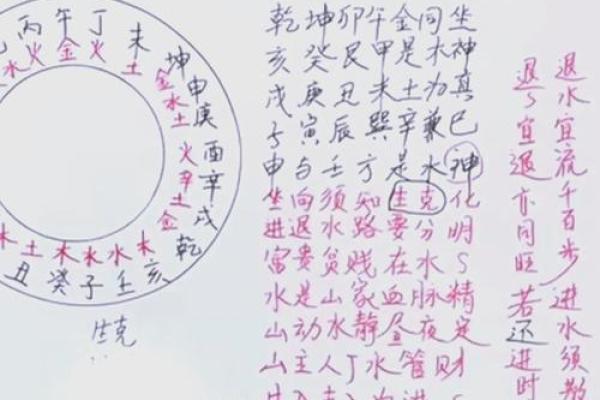 丙午丁未坤申庚酉辛戌乾
水火金火土金水土火辛土金
木土木木水木
丑癸子壬亥
生克
乾坤卯午金同坐
亥癸艮甲是木神
戌庚丑未土为真
子寅辰巽辛兼巳
申与壬方是水神
坐向须知生克化
进退水路要分明
富贵贫贱在水
水是山家血脉精
山动水静昼夜定
山主人丁水管财
退水宜流千百步进水须教
退宜退亦同旺若还进时